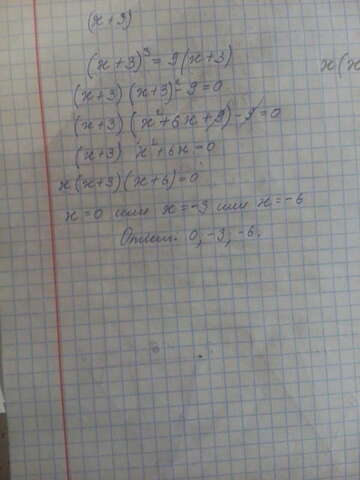 (x+3)
(x+3)³=9(x+3)
x(x
(x+3)(x+3)²-9=0
(x+3)(x²+6x+9)-9=0
(x+3) x²+6x=0
x(x+3)(x+6)=0
x=0 или x=-3 или x=-6
Ответ: 0, -3, -6.